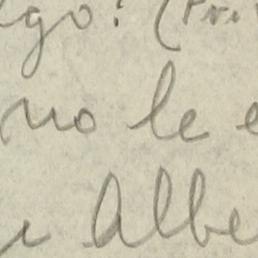 go? (Pri
no le
Albe